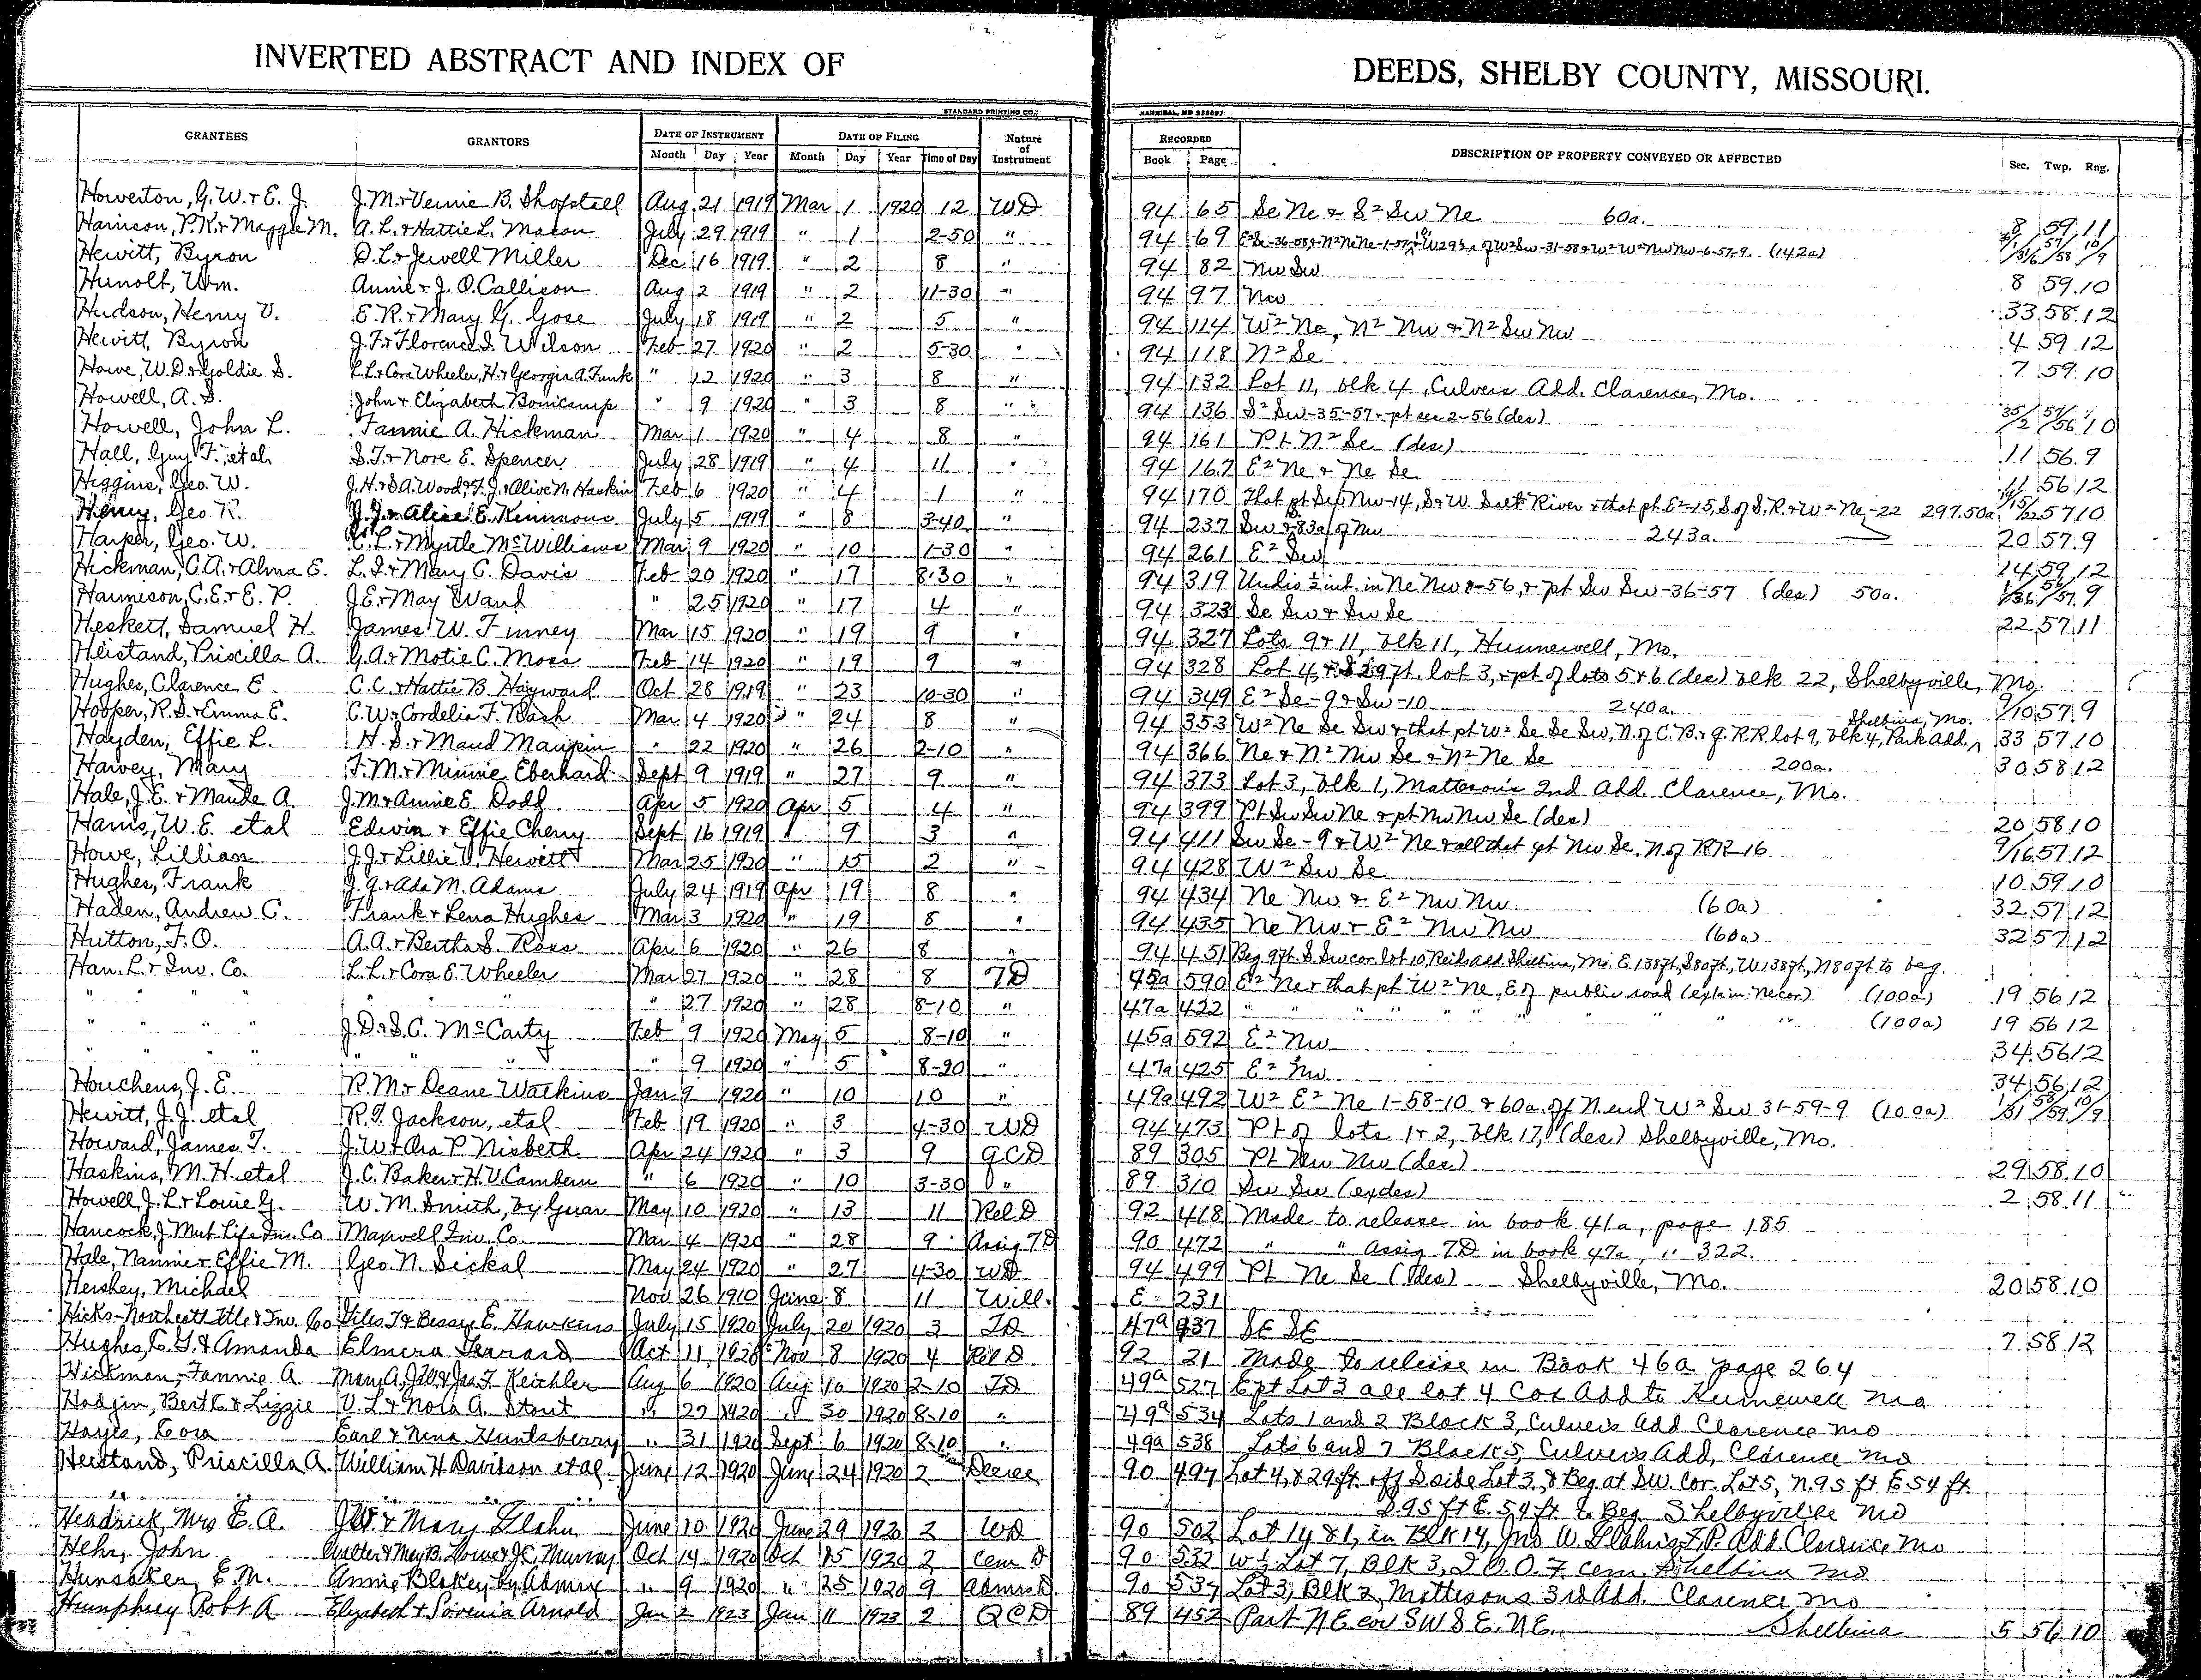 INVERTED ABSTRACT AND INDEX OF DEEDS, SHELBY COUNTY, MISSOURI.
STANDARD PRINTING CO., HANNIBAL, MO
GRANTEES GRANTORS DATE OF INSTRUMENT DATE OF FILING Nature of Instrument RECORDED DESCRIPTION OF PROPERTY CONVEYED OR AFFECTED Sec. Twp. Rng.
Month Day Year Month Day Year Time of Day Book Page
Howerton, G.W. & E. J. J.M. & Vennie B. Shofstall Aug 21 1919 Mar 1 1920 12 WD 94 65 Se Ne & S² Sw Ne 60a. 8 59 11
Harrison, P.K. & Maggie M. A. L. & Hattie L. Macon July 29 1919 " 1 2-50 " 94 69 (142a)
Hewitt, Byron D.L. & Jewell Miller Dec 16 1919 " 2 8 " 94 82 Nw Sw 8 59 10
Hunolt, Wm. Annie & J. O. Callison Aug 2 1919 " 2 11-30 " 94 97 Nw 33 58 12
Hudson, Henry V. E. R. & Mary G. Gose July 18 1919 " 2 5 " 94 114 W² Ne, N² Nw & N² Sw Nw 4 59 12
Hewitt, Byron J.F. & Florence I. Wilson Feb 27 1920 " 2 5-30 " 94 118 N² Se 7 59 10
Howe, W.D. & Goldie S. L.L. & Cora Wheeler, H. & Georgia A. Funk " 12 1920 " 3 8 " 94 132 Lot 11, blk 4, Culvers Add. Clarence, Mo.
Howell, A. S. John & Elizabeth Bonicamp " 9 1920 " 3 8 " 94 136 S² Sw-35-57 & pt sec 2-56 (des) 35/2 57/56 10
Howell, John L. Fannie A. Hickman Mar 1 1920 " 4 8 " 94 161 Pt N² Se (des) 11 56 9
Hall, Guy F. etal S.T. & Nore E. Spencer July 28 1919 " 4 11 " 94 167 E² Ne & Ne Se 11 56 12
Higgins, Geo. W. J.H. & S.A. Wood, F. J. & Olive N. Haskin Feb 6 1920 " 4 1 " 94 170 That pt Sw Nw-14, S & W Salt River & that pt E²-15, S of S.R. & W² Ne-22 297.50a 57 10
Henry, Geo. R. J.J. & Alice E. Kimmons July 5 1919 " 8 3-40 " 94 237 Sw & 83a of Nw 243a. 20 57 9
Harper, Geo. W. C. L. & Myrtle McWilliams Mar 9 1920 " 10 1-30 " 94 261 E² Sw 14 59 12
Hickman, C.A. & Alma E. L. I. & Mary C. Davis Feb 20 1920 " 17 8-30 " 94 319 Undiv ½ int. in Ne Nw 1-56, & pt Sw Sw-36-57 (des) 50a. 1/36 56/57 9
Harrison, C.E. & E. P. J.E. & May Ward " 25 1920 " 17 4 " 94 323 Se Sw & Sw Se 22 57 11
Heskett, Samuel H. James W. Finney Mar 15 1920 " 19 9 " 94 327 Lots 9 & 11, blk 11, Hunnewell, Mo.
Heistand, Priscilla A. G.A. & Motie C. Moss Feb 14 1920 " 19 9 " 94 328 Lot 4, & S 29 ft. lot 3, & pt of lots 5 & 6 (des) blk 22, Shelbyville, Mo.
Hughes, Clarence E. C.C. & Hattie B. Hayward Oct 28 1919 " 23 10-30 " 94 349 E² Se-9 & Sw-10 240a. 9/10 57 9
Hooper, R.S. & Emma E. C.W. & Cordelia F. Bash Mar 4 1920 " 24 8 " 94 353 W² Ne Se Sw & that pt W² Se Se Sw, N. of C.B. & Q. RR lot 9, blk 4, Park Add. Shelbina, Mo. 33 57 10
Hayden, Effie L. H. S. & Maud Maupin " 22 1920 " 26 2-10 " 94 366 Ne & N² Nw Se & N² Ne Se 200a. 30 58 12
Harvey, Mary F. M. & Minnie Eberhard Sept 9 1919 " 27 9 " 94 373 Lot 3, blk 1, Matteson's 2nd Add. Clarence, Mo.
Hale, J. E. & Maude A. J.M. & Annie E. Dodd Apr 5 1920 Apr 5 4 " 94 399 Pt Sw Sw Ne & pt Nw Nw Se (des) 20 58 10
Harris, W.E. etal Edwin & Effie Cherry Sept 16 1919 " 9 3 " 94 411 Sw Se-9 & W² Ne & all that pt Nw Se, N of RR 16 9/16 57 12
Howe, Lillian J.J. & Lillie V. Hewitt Mar 25 1920 " 15 2 " 94 428 W² Sw Se 10 59 10
Hughes, Frank J. Q. & Ada M. Adams July 24 1919 Apr 19 8 " 94 434 Ne Nw & E² Nw Nw (60a) 32 57 12
Haden, Andrew C. Frank & Lena Hughes Mar 3 1920 " 19 8 " 94 435 Ne Nw & E² Nw Nw (60a) 32 57 12
Hutton, F. O. A.A. & Bertha S. Ross Apr 6 1920 " 26 8 " 94 451 Beg. 9 ft S Sw cor. lot 10, Reids add Shelbina, Mo. E 138 ft, S 80 ft, W 138 ft, N 80 ft to beg.
Han. L. & Inv. Co. L.L. & Cora E. Wheeler Mar 27 1920 " 28 8 TD 45a 590 E² Ne & that pt W² Ne, E of public road (ex 1a in Ne cor.) (100a) 19 56 12
" " " " " " " " 27 1920 " 28 8-10 " 47a 422 " " " " " " " (100a) 19 56 12
" " " " J. D. & S. C. McCarty Feb 9 1920 May 5 8-10 " 45a 592 E² Nw 34 56 12
" " " " " " " " 9 1920 " 5 8-20 " 47a 425 E² Nw 34 56 12
Houchens, J. E. R. M. & Deane Watkins Jan 9 1920 " 10 10 " 49a 492 W² E² Ne 1-58-10 & 60a. off N end W² Sw 31-59-9 (100a) 1/31 58/59 10/9
Hewitt, J.J. etal R. T. Jackson, etal Feb 19 1920 " 3 4-30 WD 94 473 Pt of lots 1 & 2, blk 17, (des) Shelbyville, Mo.
Howard, James T. J.W. & Ora P. Nisbeth Apr 24 1920 " 3 9 QCD 89 305 Pt Nw Nw (des) 29 58 10
Haskins, M. H. etal J.C. Baker & H.V. Cambern " 6 1920 " 10 3-30 " 89 310 Sw Sw (ex des) 2 58 11
Howell, J. L. & Louie G. W. M. Smith, by Guar May 10 1920 " 13 11 Rel D 92 418 Made to release in book 41a, page 185
Hancock, J. Mut Life Ins. Co Maxwell Inv. Co. Mar 4 1920 " 28 9 Assig TD 90 472 " " Assig TD in book 47a, " 322.
Hale, Nannie & Effie M. Geo. N. Sickal May 24 1920 " 27 4-30 WD 94 499 Pt Ne Se (des) Shelbyville, Mo. 20 58 10
Hershey, Michael Nov 26 1910 June 8 11 Will. E 231
Hicks-Northcott Title & Inv. Co Giles T & Bessie E. Hawkins July 15 1920 July 20 1920 3 TD 47a 437 SE SE 7 58 12
Hughes, E. G. & Amanda Elmera Oct 11 1920 Nov 8 1920 4 Rel D 92 21 Made to release in Book 46a page 264
Hickman, Fannie A Mary A, & Jas. F. Keichler Aug 6 1920 Aug 10 1920 2-10 TD 49a 527 Ept Lot 3 all lot 4 Cox Add to Hunnewell Mo
Hodgin, Bert E. & Lizzie V. L. & Nola A. Stout " 27 1920 " 30 1920 8-10 " 49a 534 Lots 1 and 2 Block 3, Culvers Add Clarence Mo
Hayes, Cora Earl & Nina Huntsberry " 31 1920 Sept 6 1920 8-10 " 49a 538 Lots 6 and 7 Block 5, Culvers Add, Clarence Mo
Heistand, Priscilla A. William H Davisson et al June 12 1920 June 24 1920 2 Decree 90 497 Lot 4, & 29 ft. off S side Lot 3, & Beg at SW. Cor. Lot 5, N. 95 ft E 54 ft
" " " " S. 95 ft E. 54 ft to Beg Shelbyville Mo
Headrick, Mrs E. A. J.W. & Mary Glahn June 10 1920 June 29 1920 2 WD 90 502 Lot 14 & 1, in Blk 14, Jno W. Glahn's F.P. Add. Clarence Mo
Hehr, John Walter & May B. & J.C. Murray Oct 14 1920 Oct 15 1920 2 Cem D 90 532 W½ Lot 7, Blk 3, I.O.O.F Cem. Shelbina Mo
Hunsaker, E.M. Annie Blakey by Admrx " 9 1920 " 25 1920 9 Admrs D. 90 537 Lot 3, Blk 2, Mattesons 3rd Add. Clarence Mo
Humphrey Robt A Elizabeth & Arnold Jan 2 1923 Jan 11 1923 2 QCD 89 452 Part NE cor SW SE. NE. Shelbina 5 56 10